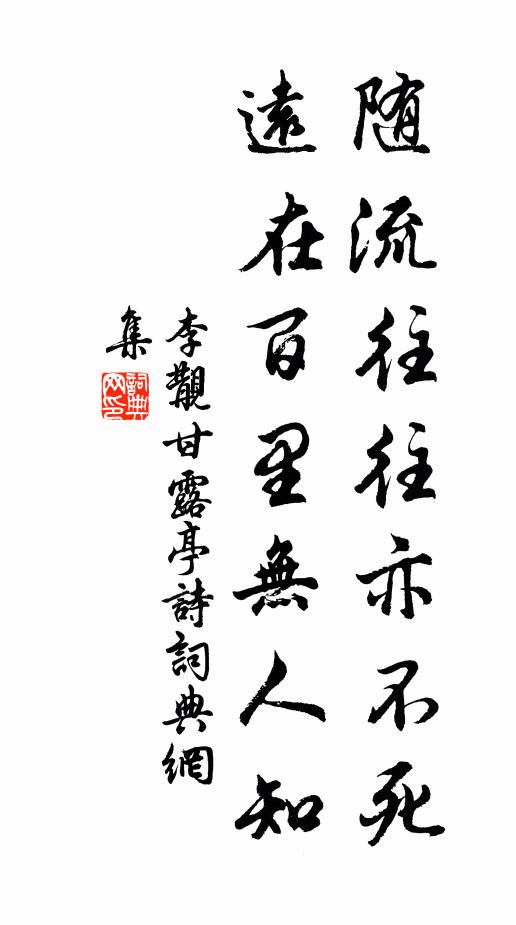 随流往往亦不死
遠在百里無人知
李觀甘露亭詩詞典網
集
詞典网印